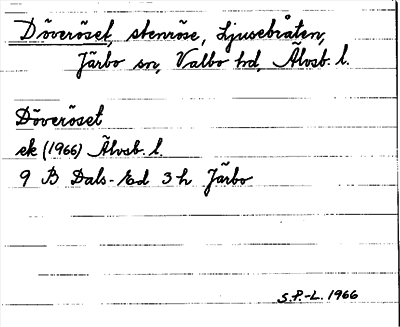 Döveröset, stenröse, Ljusebråten,
Järbo sn, Valbo hd, Älvsb. l.
Döveröset
ek (1966) Älvsb. l.
9 B Dals-Ed 3 h Järbo
S.P.-L. 1966